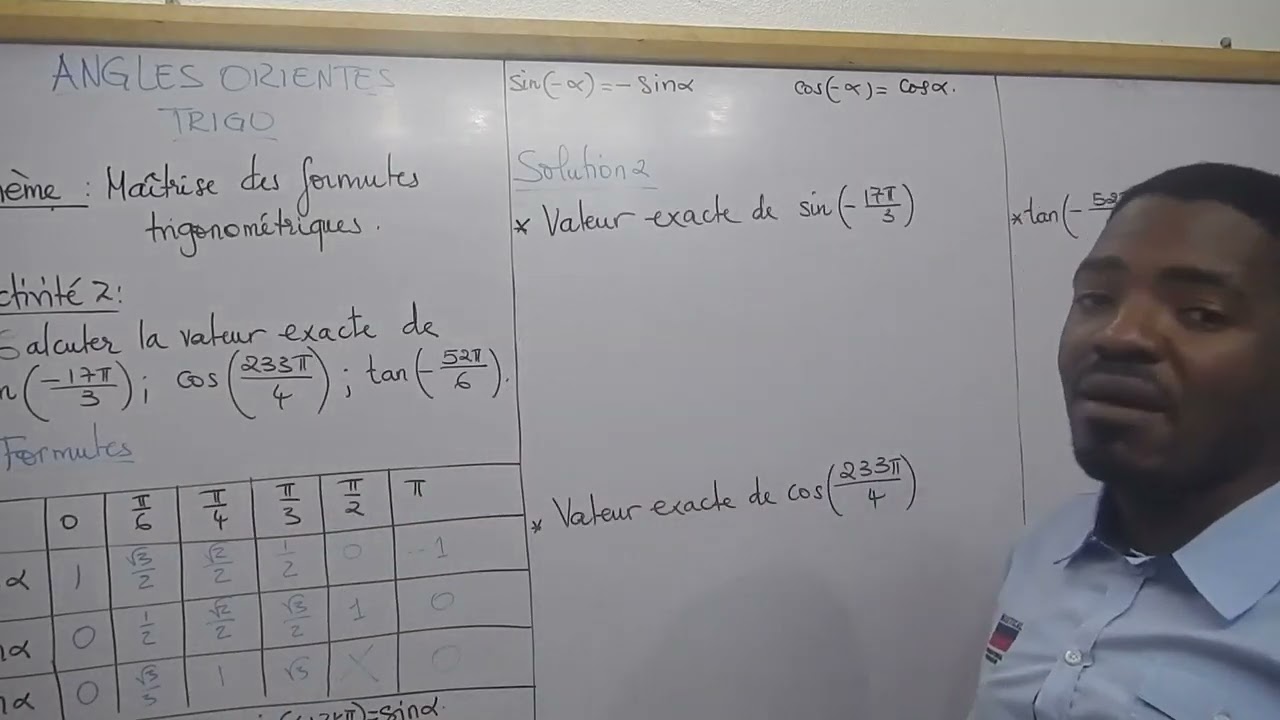 ANGLES ORIENTES
TRIGO
ème : Maîtrise des formules
trigonométriques.
ctivité 2:
Calculer la valeur exacte de
n(-17π/3); cos(233π/4); tan(-52π/6).
Formules
0 π/6 π/4 π/3 π/2 π
α 1 √3/2 √2/2 1/2 0 -1
α 0 1/2 √2/2 √3/2 1 0
α 0 √3/3 1 √3 X 0
=sinα.
sin(-α)=-sinα cos(-α)=cosα.
Solution 2
* Valeur exacte de sin(-17π/3)
* Valeur exacte de cos(233π/4)
* tan(-52